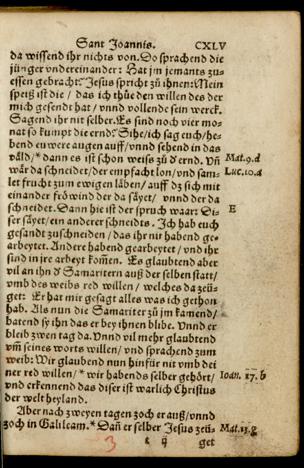 Sant Joannis. CXLV
da wissend ihr nichts von. Do sprachend die
jünger undereinander: Hat jm jemants zu=
essen gebracht? Jesus spricht zů ihnen: Mein
speiß ist die / das ich thüe den willen des der
mich gesendt hat / vnnd vollende sein werck.
Sagend ihr nit selber: Es sind noch vier mo=
nat so kumpt die ernd? Sihe / ich sag euch / he=
bend euwere augen auff / vnnd sehend in das
väld / * dann es ist schon weiß zů d' ernd. Vñ Mat. 9.d
wär da schneidet / der empfacht lon / vnd sam= Luc. 10.a
let frucht zum ewigen läben / auff dz sich mit
einander fröwind der da säyet / vnnd der da
schneidet. Dann hie ist der spruch waar: Di= E
ser säyet / ein anderer schneidts. Ich hab euch
gesandt zuschneiden / das ihr nit habend ge=
arbeytet. Andere habend gearbeytet / vnd ihr
sind in jre arbeyt kom̃en. Es glaubtend aber
vil an ihn d' Samaritern auß der selben statt /
vmb des weibs red willen / welches da zeü=
get: Er hat mir gesagt alles was ich gethon
hab. Als nun die Samariter zů jm kamend /
batend sy ihn das er bey ihnen blibe. Vnnd er
bleib zwen tag da. Vnnd vil mehr glaubtend
vm̃ seines worts willen / vnd sprachend zum
weib: Wir glaubend nun hinfür nit vmb dei
ner red willen / * wir habends selber gehört / Joan. 17.b
vnd erkennend das diser ist warlich Christus
der welt heyland.
Aber nach zweyen tagen zoch er auß / vnnd
zoch in Galileam. * Dañ er selber Jesus zeü= Mat. 13.g
3 ij get